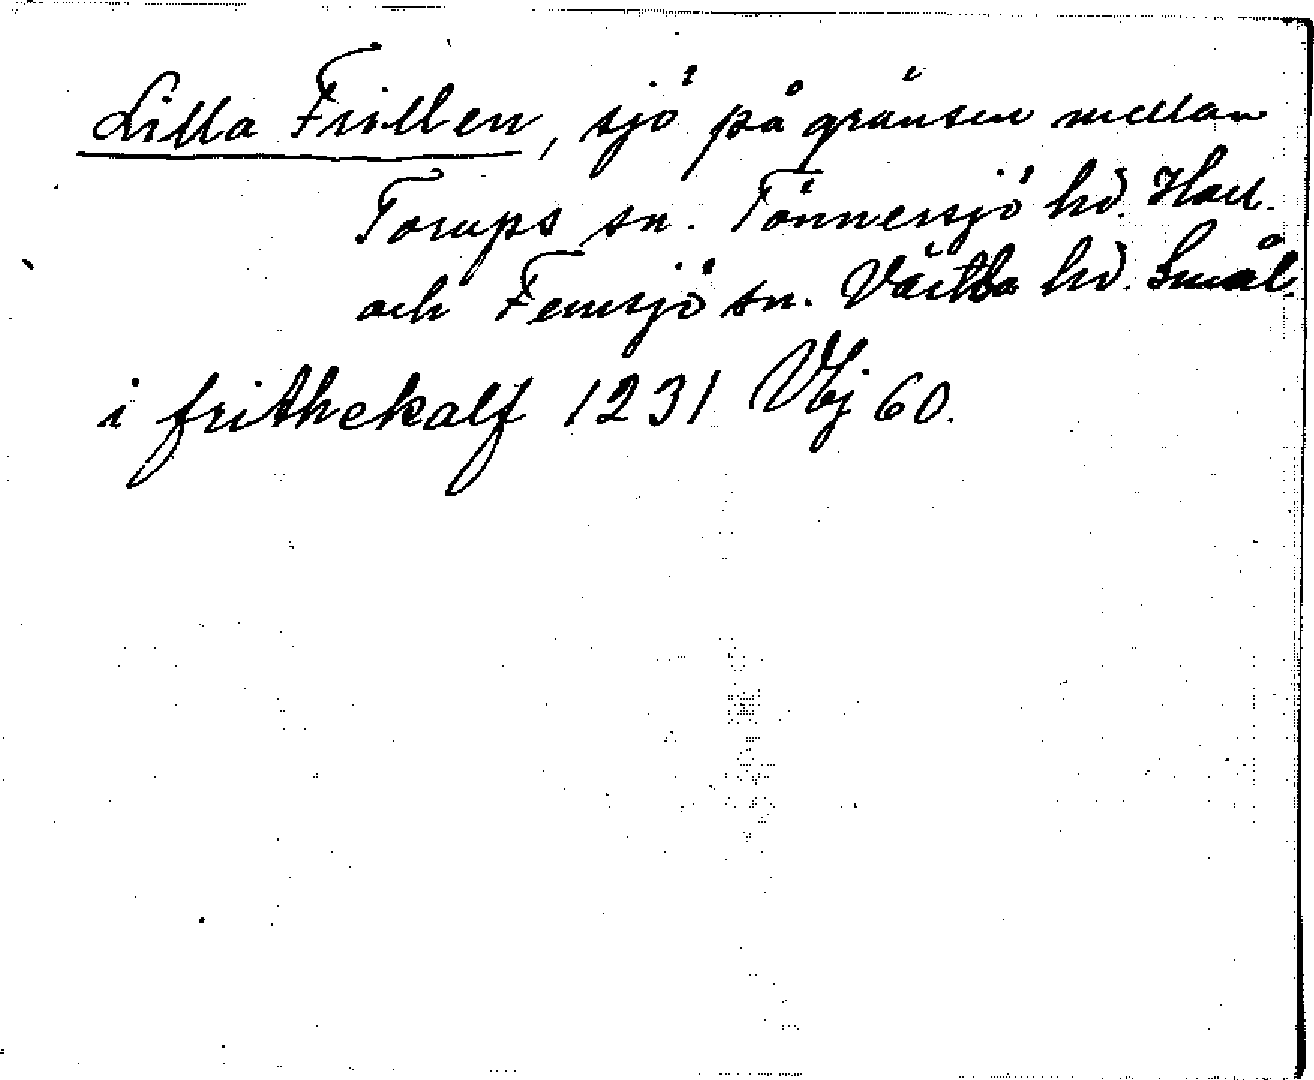 Lilla Frillen, sjö på gränsen mellan
Torups sn. Tönnersjö hd. Hall.
och Femsjö sn. Västbo hd. Smål.
i frithekalf 1231 Vbj 60.